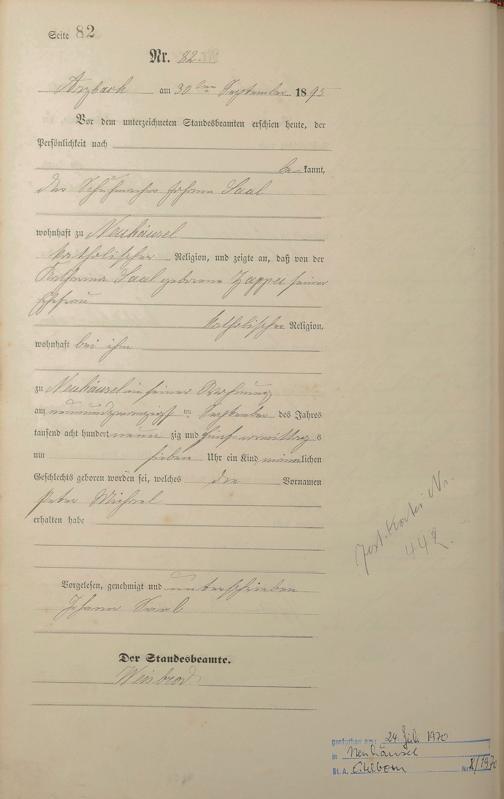 Seite 82
Nr. 82
Arzbach am 30ten September 1895
Vor dem unterzeichneten Standesbeamten erschien heute, der
Persönlichkeit nach
be kannt,
der Schuhmacher Johann Saal
wohnhaft zu Neuhäusel
katholischer Religion, und zeigte an, daß von der
Katharina Saal geborene Zappei seiner
Ehefrau
katholischer Religion,
wohnhaft bei ihm
zu Neuhäusel in seiner Wohnung
am neunundzwanzigsten September des Jahres
tausend acht hundert neun zig und fünf vormittags
um sieben Uhr ein Kind männlichen
Geschlechts geboren worden sei, welches die Vornamen
Peter Michael
erhalten habe
Vorgelesen, genehmigt und unterschrieben
Johann Saal
Der Standesbeamte.
Weisbrod
Nr.
442.
gestorben am: 24. Juli 1970
in Neuhäusel
St. A. Nr. /1970